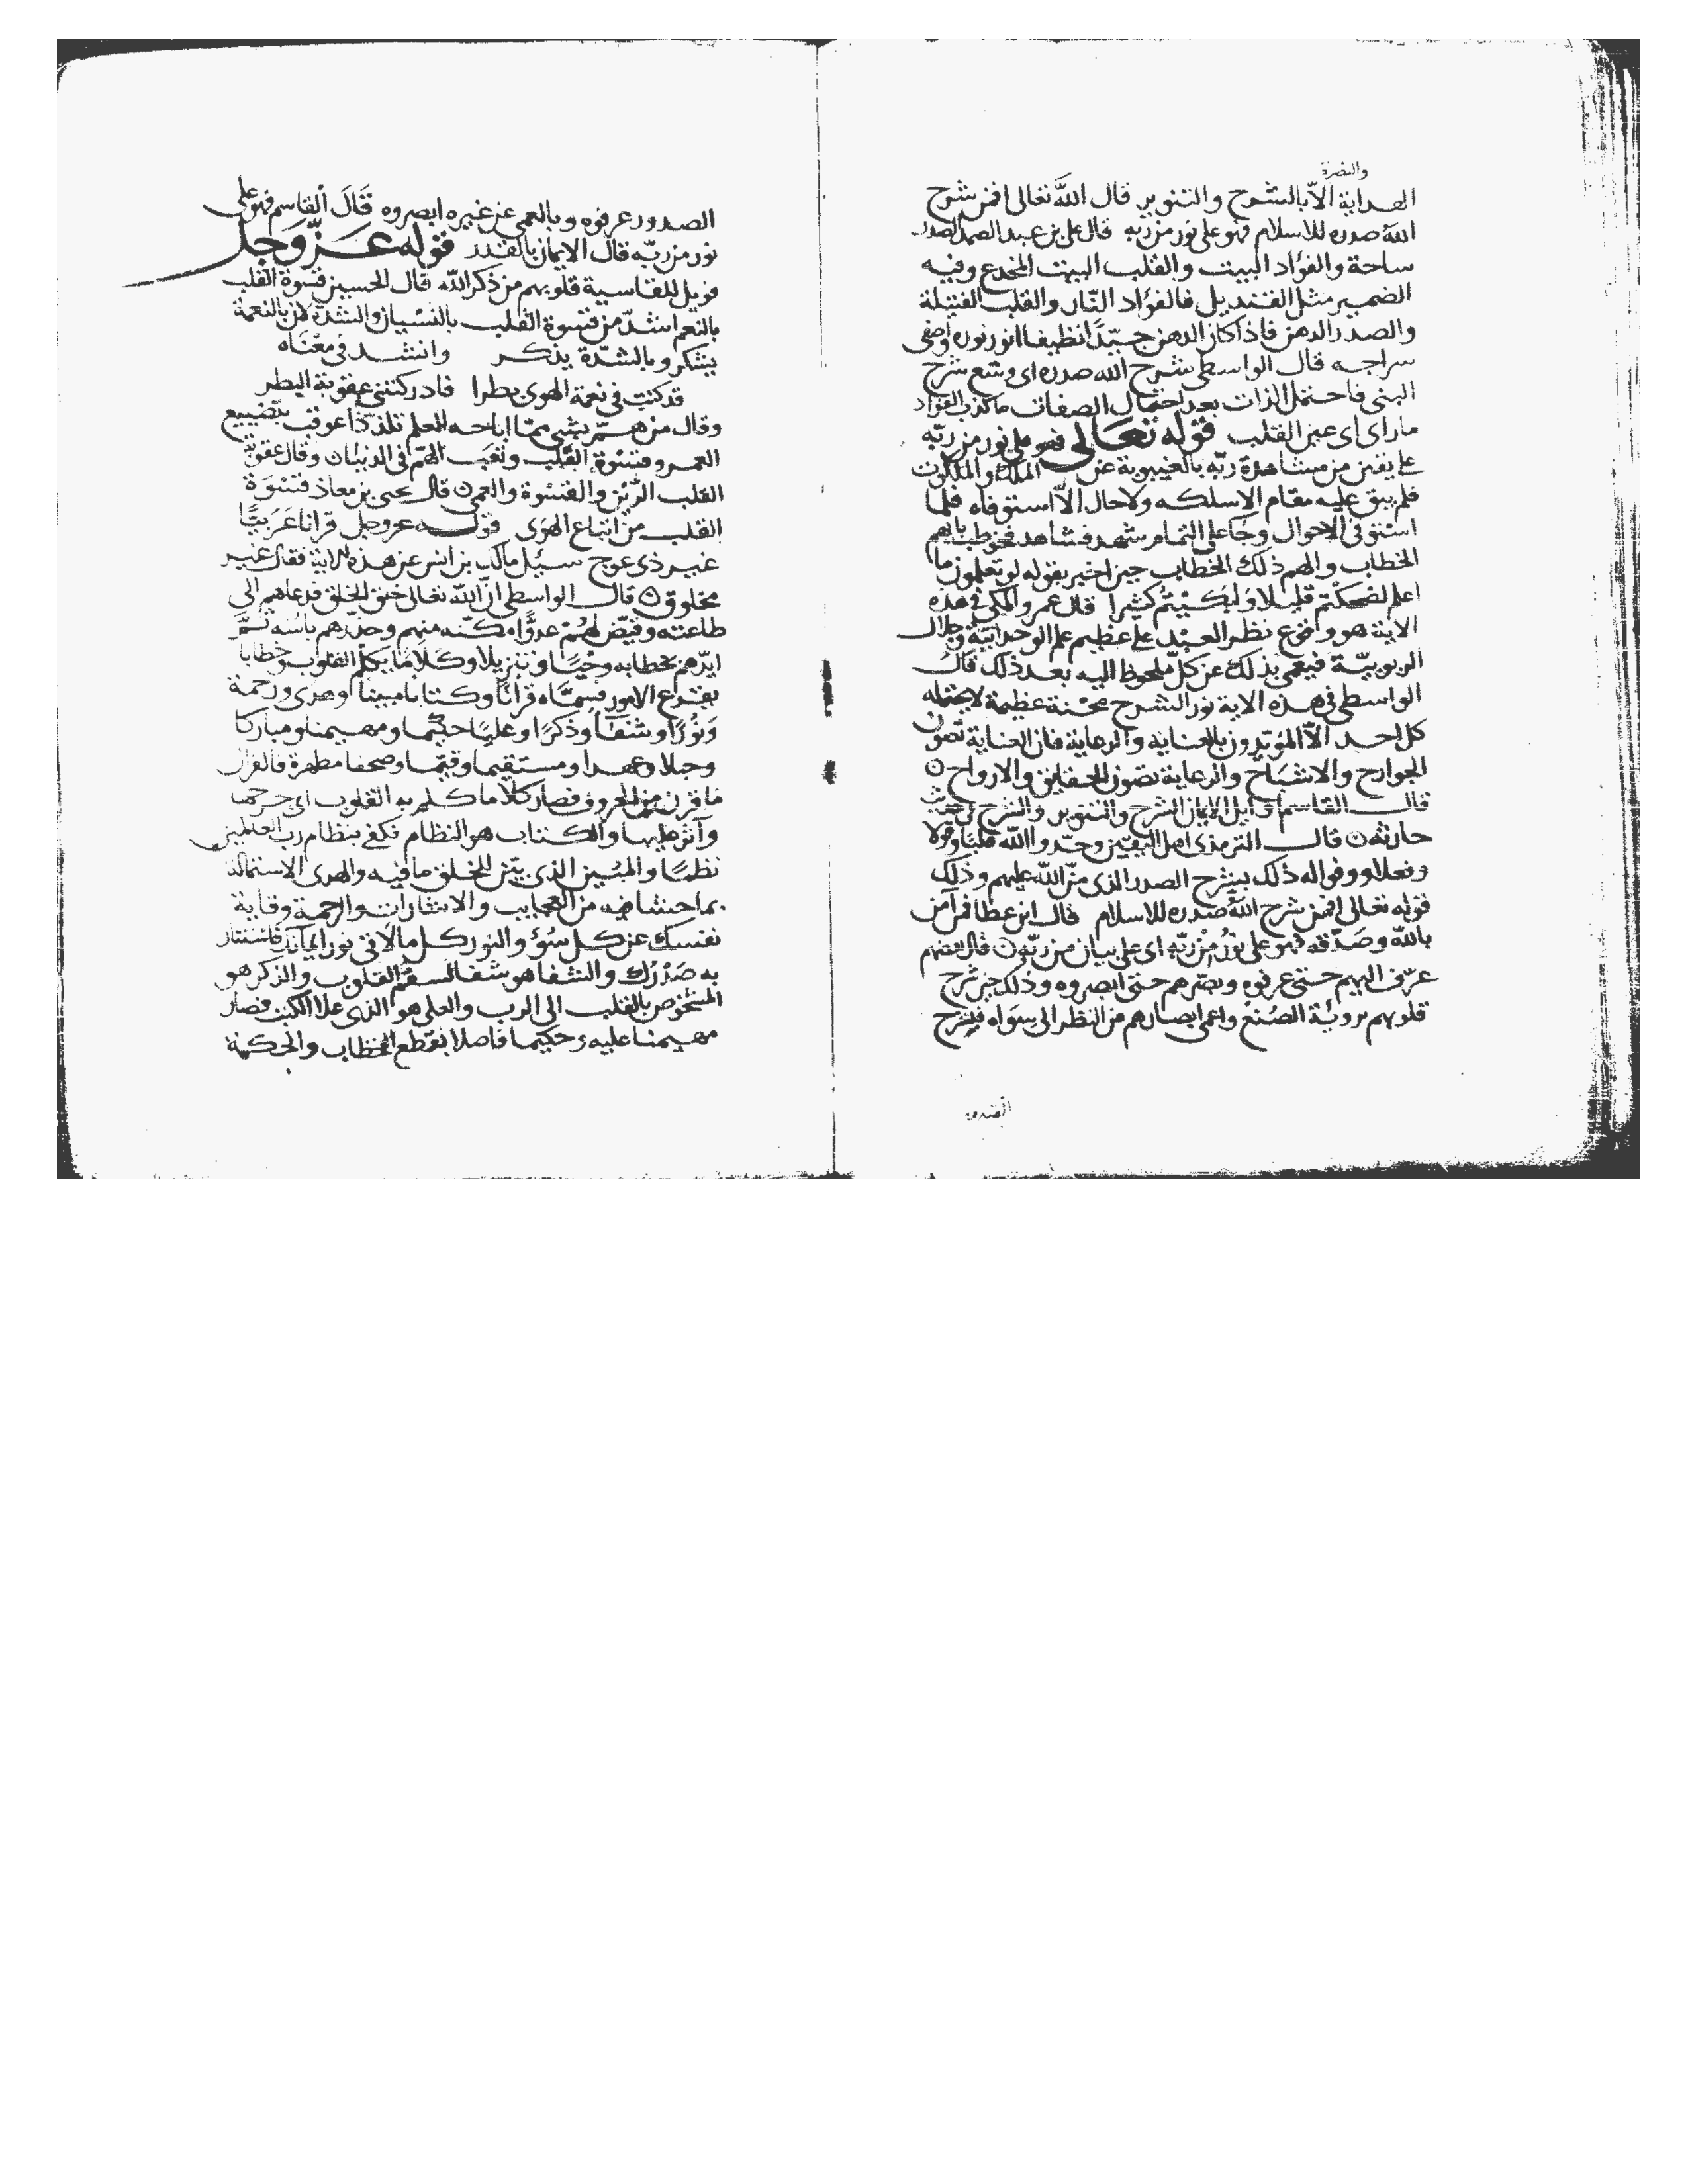 والنصرة
الهداية الا بالشرح والتنوير قال الله تعالى افمن شرح
الله صدره للاسلام فهو على نور من ربه قال على بن عبد الصمد الصدر
ساحة والفؤاد البيت والقلب البيت المخدع وفيه
الضمير مثل القنديل فالفؤاد النار والقلب الفتيلة
والصدر الدهن فاذا كان الدهن جيدا نظيفا انور نوره واضى
سراجه قال الواسطى شرح الله صدره اى وسع شرح
النبى فاحتمل الذات بعد احتمال الصفات ما كذب الفؤاد
ما راى اى عين القلب قوله تعالى فهو على نور من ربه
على يقين من مشاهدة ربه بالغيبوبة عن الملك والملكوت
فلم يبق عليه مقام الا سلكه ولا حال الا استوفاه فلما
استوفى الاحوال وجا على التمام شهد فشاهد فخوطب بافهم
الخطاب والهم ذلك الخطاب حين اخبر بقوله لو تعلمون ما
اعلم لضحكتم قليلا ولبكيتم كثيرا قال عمرو المكى فى هذه
الاية هو وقوع نظر العبد على عظيم علم الوحدانية وجلال
الربوبية فيعمى بذلك عن كل ملحوظ اليه بعد ذلك قال
الواسطى فى هذه الاية نور الشرح محنة عظيمة لا يحتمله
كل احد الا المؤيدون بالعناية والرعاية فان العناية تصون
الجوارح والاشباح والرعاية تصون الحقايق والارواح
قالت القاسم اوايل الايمان الشرح والتنوير والشرح فى حديث
حارثه قالت الترمذى اهل اليقين وحدوا الله قلبا وقولا
وفعلا وو فواله ذلك بشرح الصدر الذى من الله عليهم وذلك
قوله تعالى افمن شرح الله صدره للاسلام قال ابن عطا فمن آمن
بالله وصدقه فهو على نور من ربه اى على بيان من ربه قال بعضهم
عرف اليهم حتى عرفوه وبصرهم حتى ابصروه وذلك حين شرح
قلوبهم بروية الصنع واعمى ابصارهم من النظر الى سواه فبشرح
الصدور
الصدور عرفوه وبالعمى عن غيره ابصروه قال القاسم فهو على
نور من ربه قال الايمان بالقدر قوله عز وجل
فويل للقاسية قلوبهم من ذكر الله قال الحسين قسوة القلب
بالنعم اشد من قسوة القلب بالنسيان والشدة لان بالنعمة
يشكر وبالشدة يذكر وانشد فى معناه
قد كنت فى نعمة الهوى بطرا فادركتنى عقوبة البطر
وقال من هم بشى مما اباحه العلم تلذذا عوقب بتضييع
العمر وقسوة القلب وتعب الهم فى الدنيا وقال عقوبة
القلب الرين والقسوة والعمى قال يحيى بن معاذ قسوة
القلب من اتباع الهوى قوله عز وجل قرانا عربيا
غير ذى عوج سئل مالك بن انس عن هذه الاية فقال غير
مخلوق قال الواسطى ان الله تعالى خلق الخلق فدعاهم الى
طاعته وقيض لهم عدوا مكنه منهم وحذرهم باسه ثم
ايدهم بخطابه وحيا وتنزيلا وكلاما يكلم القلوب وخطابا
يقرع الامور فسماه قرانا وكتابا مبينا وهدى ورحمة
ونورا وشفا وذكرا وعليا حكيما ومهيمنا ومباركا
وحبلا وعهدا ومستقيما وقيما وصحفا مطهرة فالقران
ما قرن من الحروف فصار كلاما كلم به القلوب اى جرحها
واثر عليها والكتاب هو النظام فكفى بنظام رب العلمين
نظما والمبين الذى بين للخلق ما فيه والهدى الاستمالة
بما حشا فيه من العجايب والاشارات والرحمة وقاية
نفسك عن كل سوء والنور كل ما لاقى نور ايمانك فاستنار
به صدرك والشفا هو شفا لسقم القلوب والذكر هو
المشخوص بالقلب الى الرب والعلى هو الذى علا الكتب فصار
مهيمنا عليه وحكيما فاصلا بقطع الخطاب والحكمة